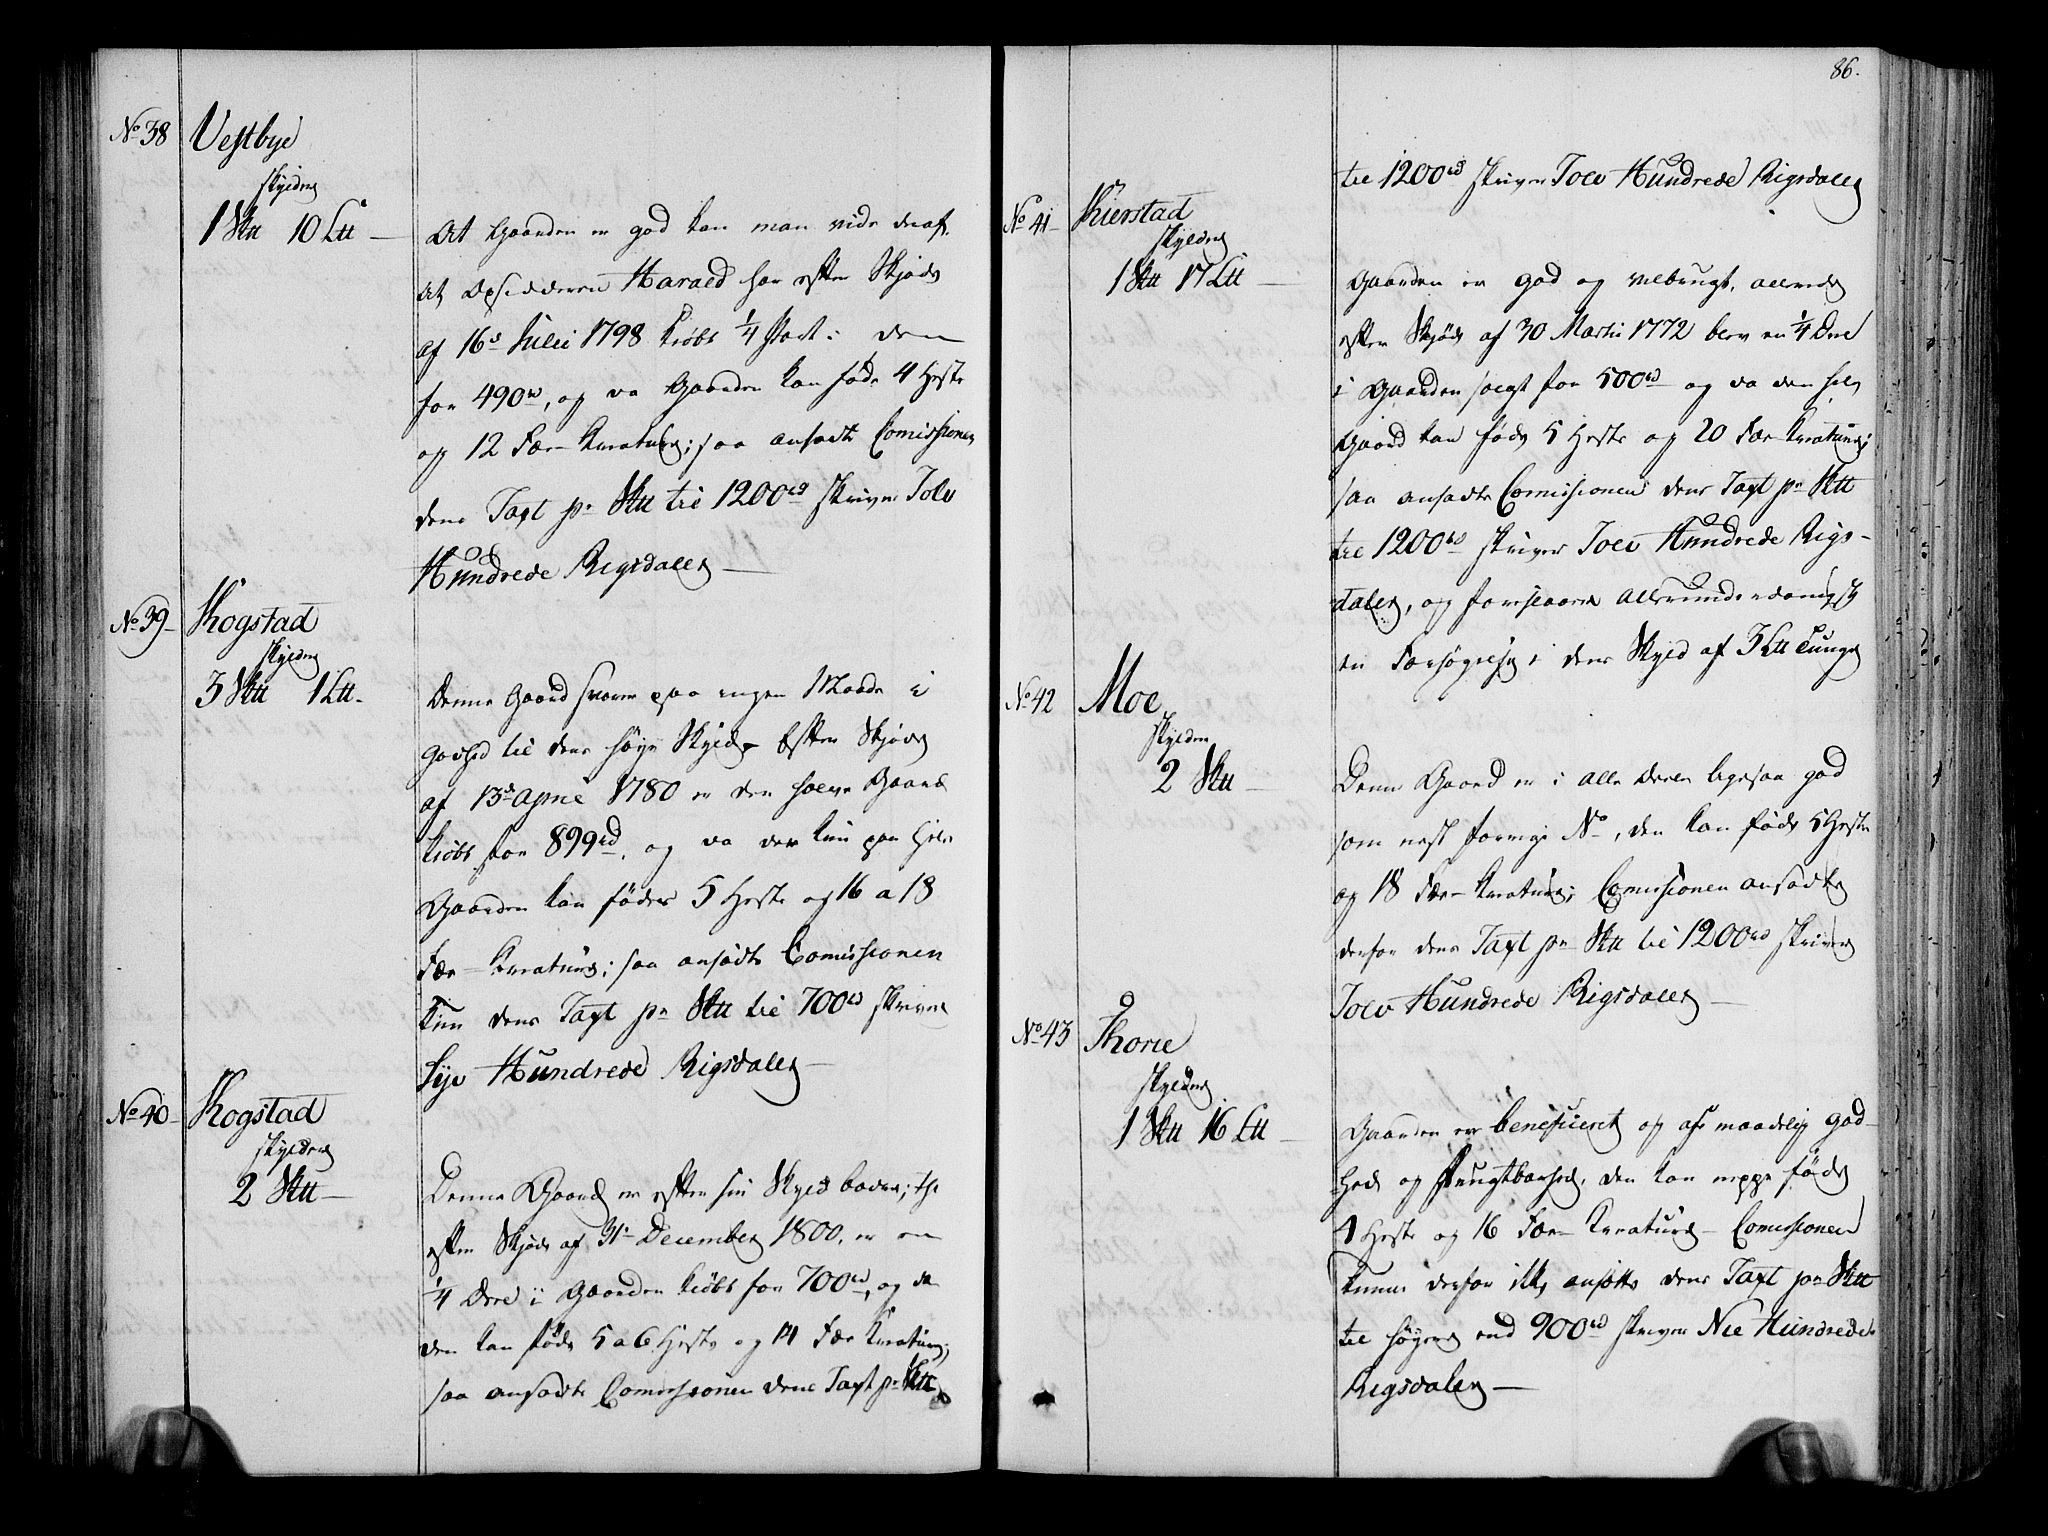 No 38
Vestbye
skylder
1 Sktt 10 Ltt —
At Gaarden er god kan man vide deraf,
at Opsidderen Harald har efter Skjøde
af 16de Julii 1798 kiøbt 1/4 Part i den
for 490 rd, og da Gaarden kan føde 4 Heste
og 12 Fæe-Kreature; saa ansadte Comissionen
dens Taxt pr Sktt til 1200 rd skriver Tolv
Hundrede Rigsdaler —
No 39
Kogstad
skylder
3 Sktt 1 Ltt.
Denne Gaard svarer paa ingen Maade i
Godhed til dens høye Skyld. Efter Skjøde
af 13de April 1780 er den halve Gaard
kiøbt for 899 rd, og da der kun paa hele
Gaarden kan fødes 5 Heste og 16 a 18
Fæe-Kreature; saa ansadte Comissionen
kun dens Taxt pr Sktt til 700 rd skriver
Syv Hundrede Rigsdaler —
No 40
Kogstad
skylder
2 Sktt —
Denne Gaard er efter sin Skyld bedre; thi
efter Skjøde af 31te December 1800, er en
1/4 Deel i Gaarden kiøbt for 700 rd, og da
den kan føde 5 a 6 Heste og 14 Fæe Kreature;
saa ansadte Comissionen dens Taxt pr Sktt
86.
til 1200 rd skriver Tolv Hundrede Rigsdaler
No 41
Kierstad
skylder
1 Sktt 17 Ltt —
Gaarden er god og velbrugt, allerede
efter Skjøde af 30 Martii 1772 blev en 1/4 Deel
i Gaarden solgt for 500 rd og da den hele
Gaard kan føde 5 Heste og 20 Fæe-Kreature;
saa ansadte Comissionen dens Taxt pr Sktt
til 1200 rd skriver Tolv Hundrede Rigs-
daler, og foreslaaer allerunderdanigst
en Forhøyelse i dens Skyld af 3 Ltt Tunge
No 42
Moe
skylder
2 Sktt —
Denne Gaard er i alle Deele ligesaa god
som nest forrige No, den kan føde 5 Heste
og 18 Fæe-Kreature; Comissionen ansadte
derfor dens Taxt pr Sktt til 1200 rd skriver
Tolv Hundrede Rigsdaler —
No 43
Thorie
skylder
1 Sktt 16 Ltt —
Gaarden er beneficeret og af maadelig God-
hed og Frugtbarhed, den kan neppe føde
4 Heste og 16 Fæe-Kreature — Comissionen
kunne derfor ikke ansette dens Taxt pr Sktt
til høyere end 900 rd skriver Nie Hundrede
Rigsdaler —